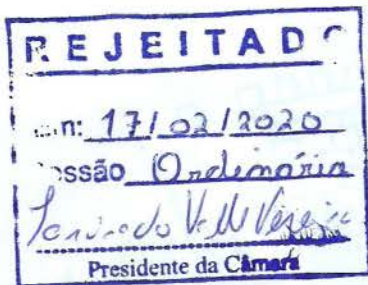 REJEITADO
Em: 17/02/2020
Sessão Ordinária
Presidente da Câmara